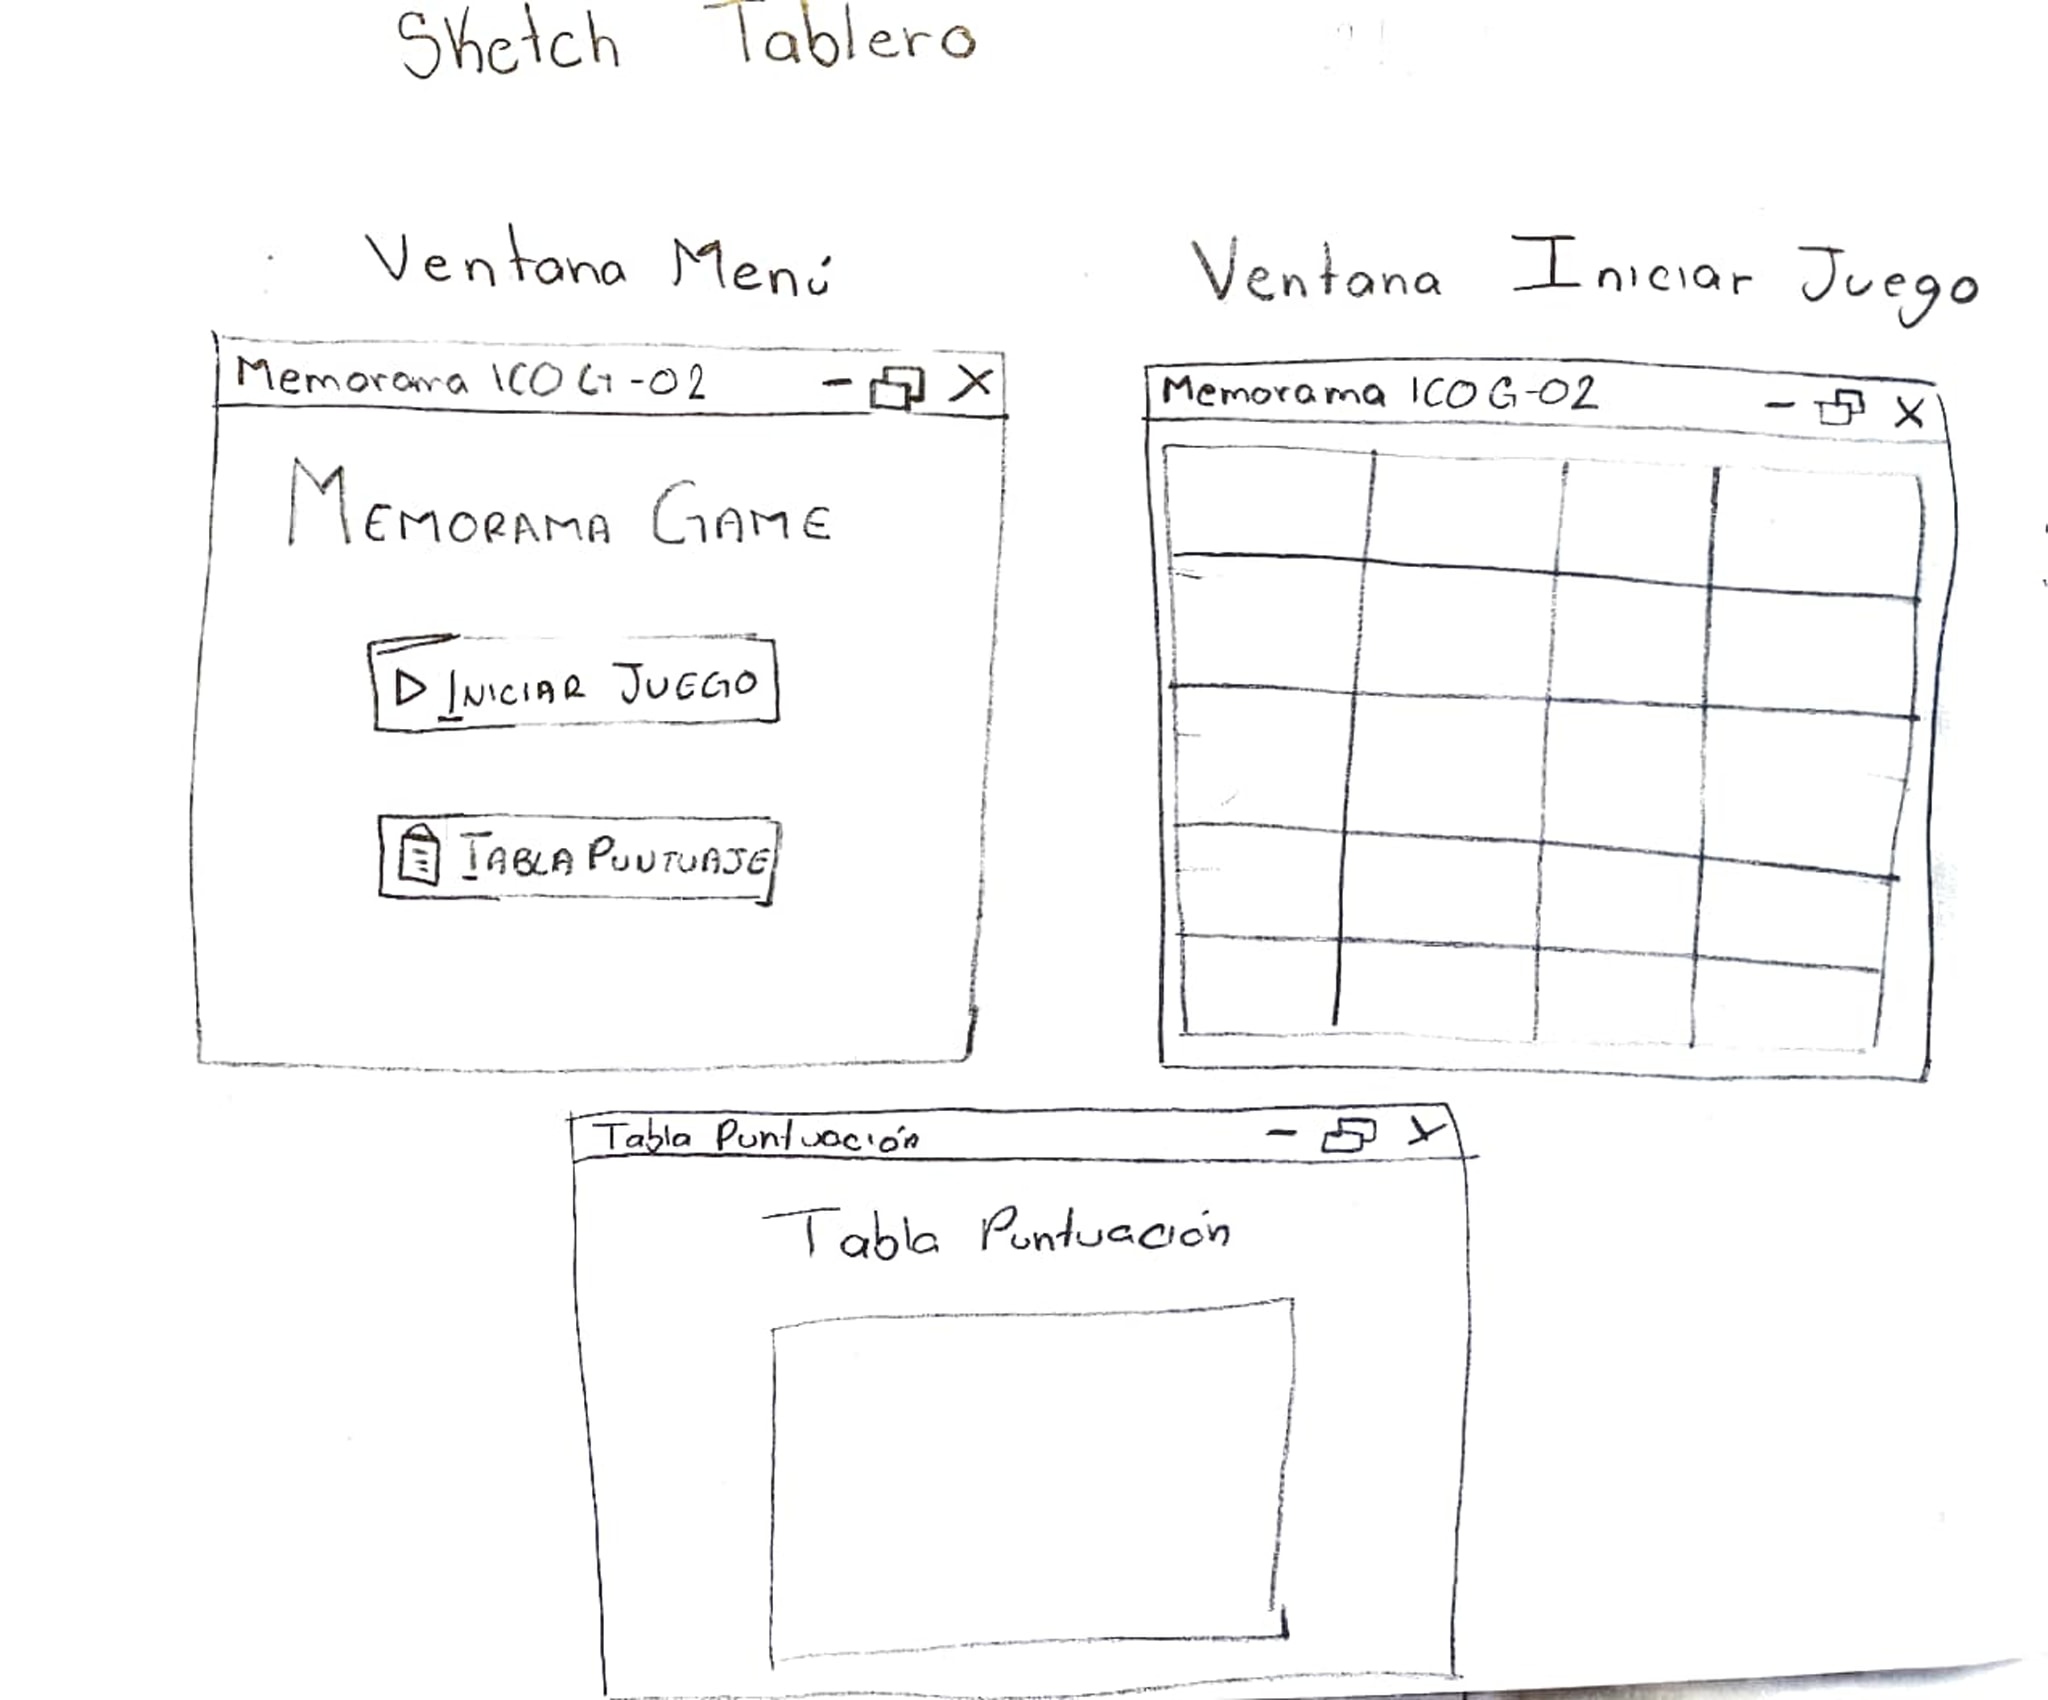 Sketch Tablero
Ventana Menú
Memorama ICO G-02
MEMORAMA GAME
INICIAR JUEGO
TABLA PUNTUAJE
Ventana Iniciar Juego
Memorama ICO G-02
Tabla Puntuación
Tabla Puntuación